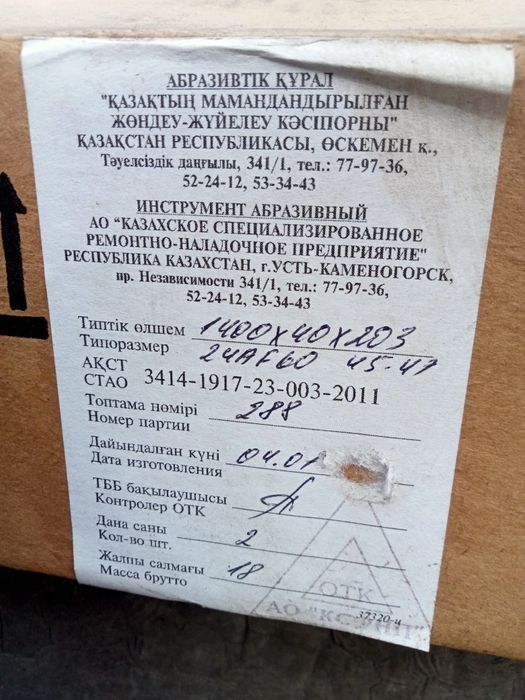 АБРАЗИВТІК ҚҰРАЛ
"ҚАЗАҚТЫҢ МАМАНДАНДЫРЫЛҒАН
ЖӨНДЕУ-ЖҮЙЕЛЕУ КӘСІПОРНЫ"
ҚАЗАҚСТАН РЕСПУБЛИКАСЫ, ӨСКЕМЕН қ.,
Тәуелсіздік даңғылы, 341/1, тел.: 77-97-36,
52-24-12, 53-34-43
ИНСТРУМЕНТ АБРАЗИВНЫЙ
АО "КАЗАХСКОЕ СПЕЦИАЛИЗИРОВАННОЕ
РЕМОНТНО-НАЛАДОЧНОЕ ПРЕДПРИЯТИЕ"
РЕСПУБЛИКА КАЗАХСТАН, г.УСТЬ-КАМЕНОГОРСК,
пр. Независимости 341/1, тел.: 77-97-36,
52-24-12, 53-34-43
Типтік өлшем 1400х40х203
Типоразмер 24AF60
АҚСТ
СТАО 3414-1917-23-003-2011
Топтама нөмірі 288
Номер партии
Дайындалған күні 04.01
Дата изготовления
ТББ бақылаушысы
Контролер ОТК
Дана саны 2
Кол-во шт.
Жалпы салмағы 18
Масса брутто
37320-и
ОТК
АО "КСРНП"